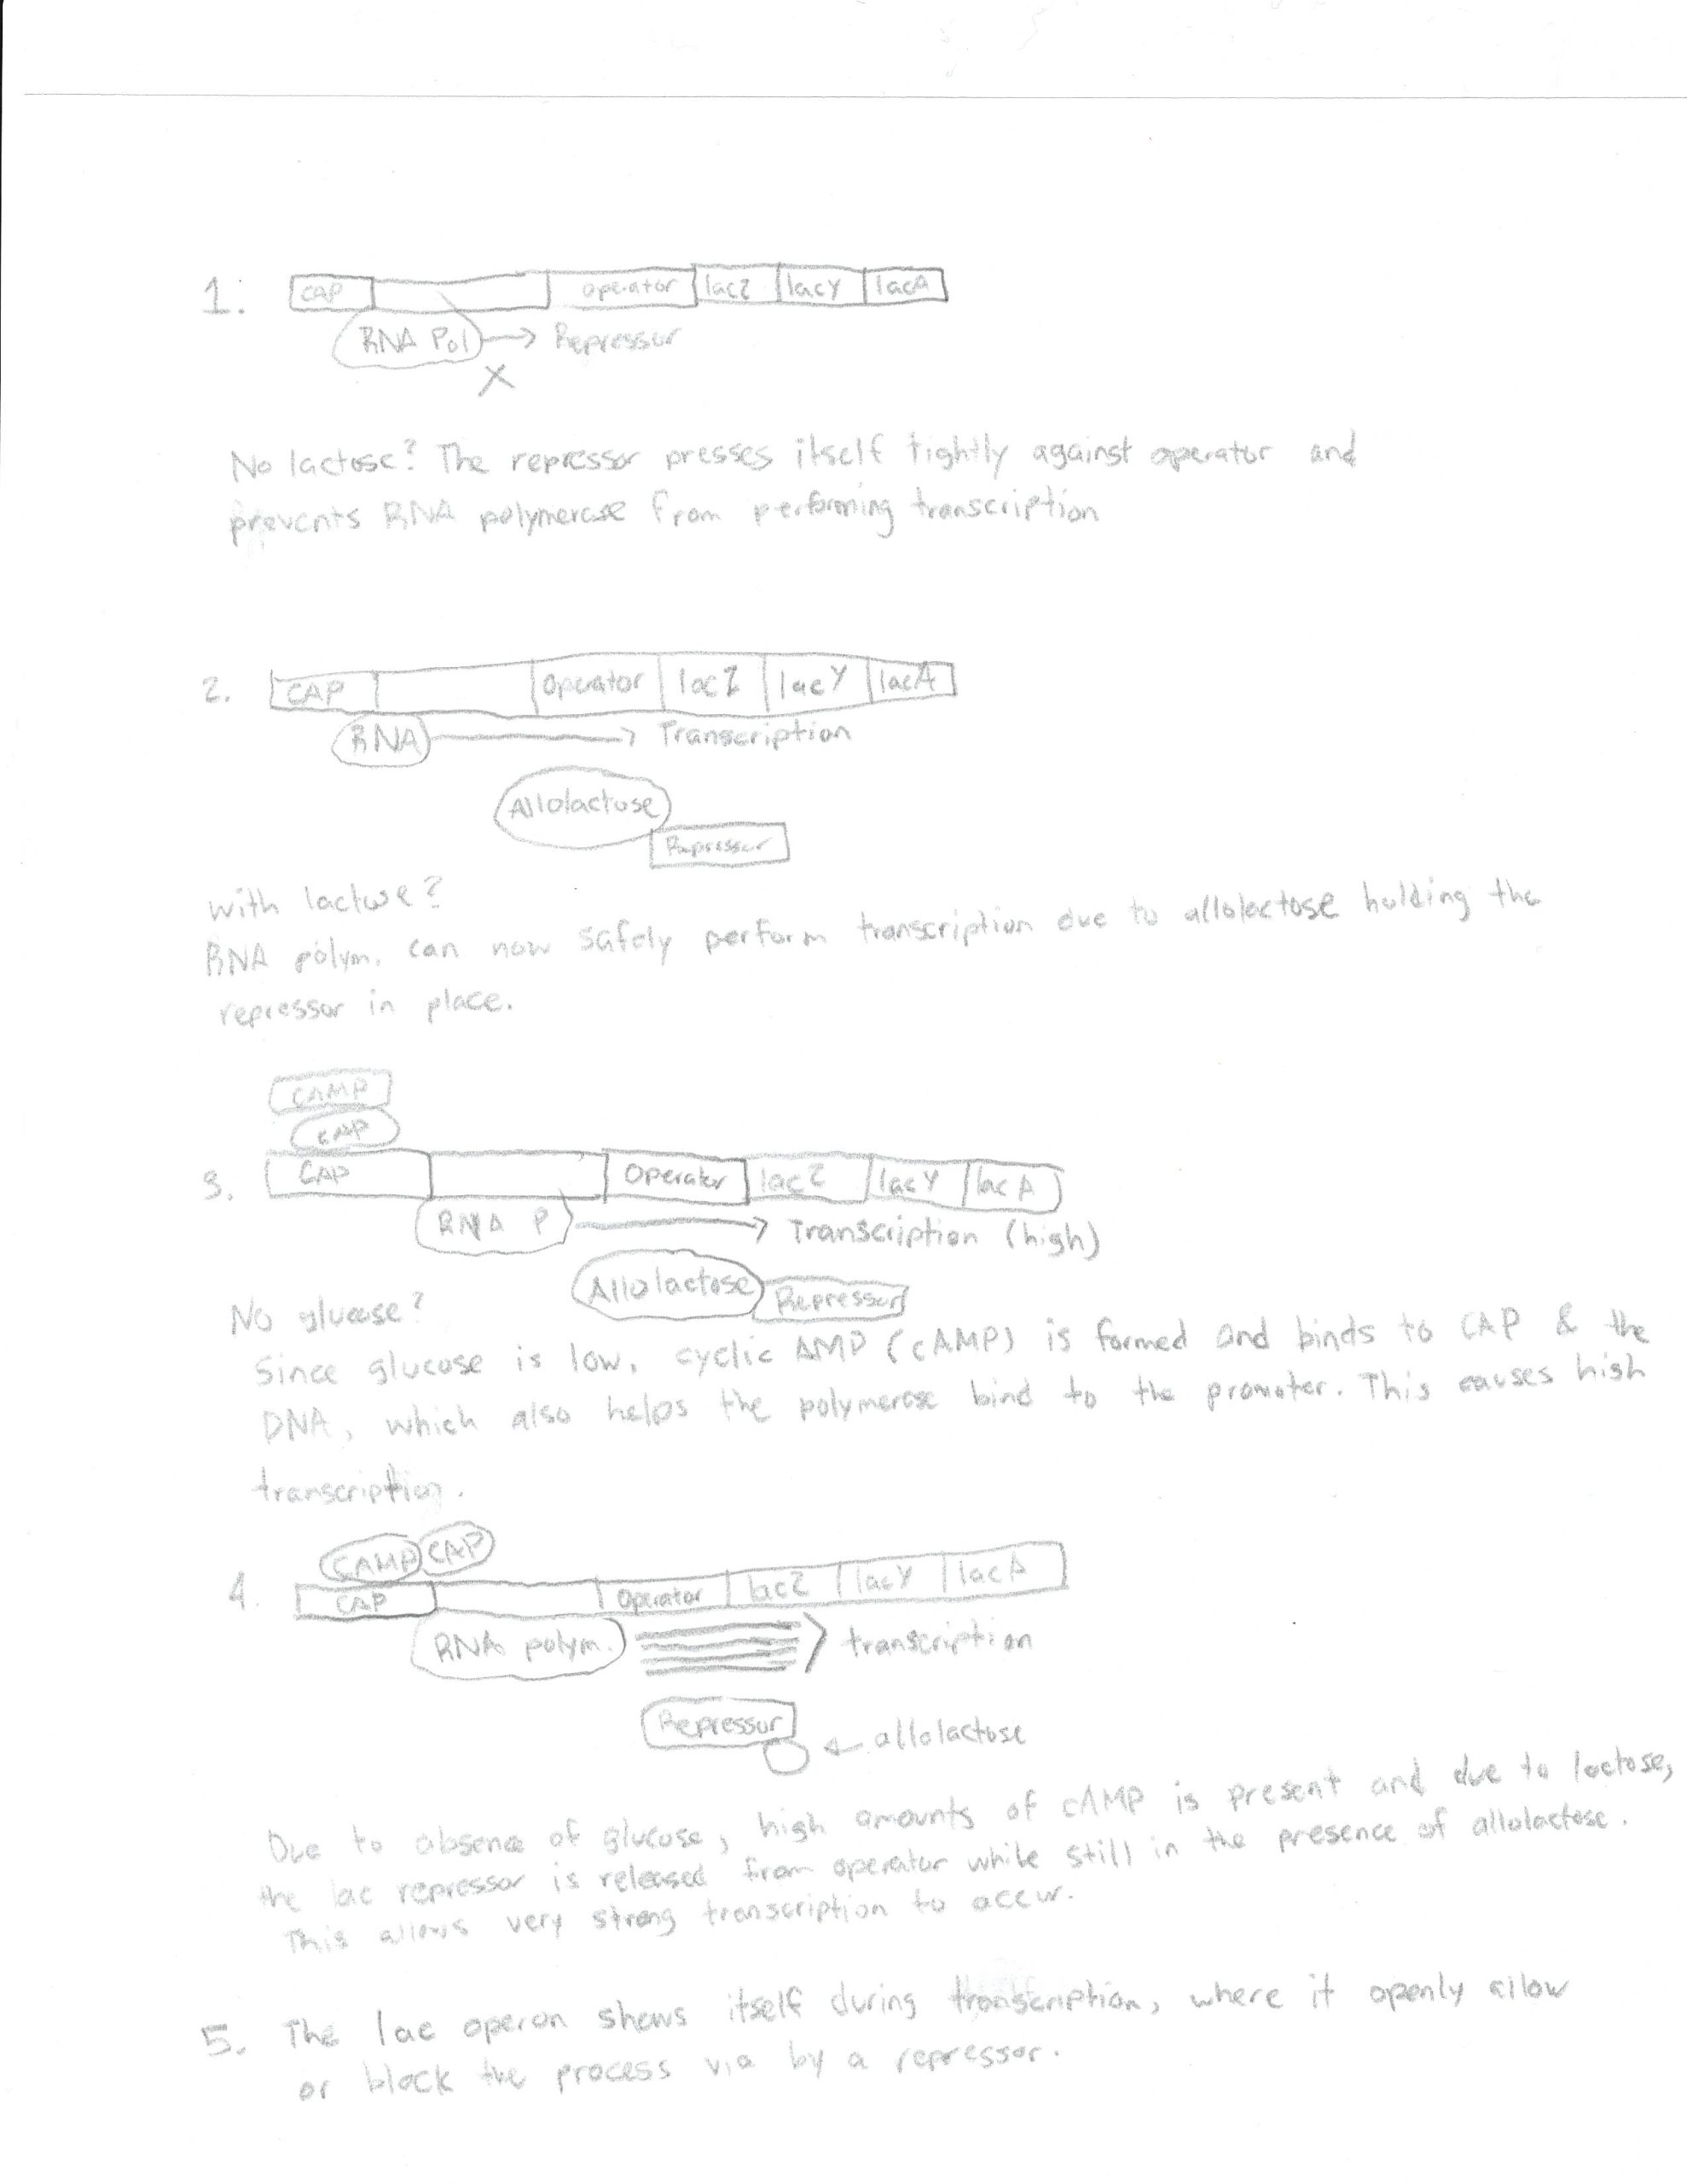 1. CAP operator lacZ lacY lacA
RNA Pol → Repressor
X
No lactose? The repressor presses itself tightly against operator and
prevents RNA polymerase from performing transcription
2. CAP operator lacZ lacY lacA
RNA → Transcription
Allolactose
Repressor
with lactose?
RNA polym. can now safely perform transcription due to allolactose holding the
repressor in place.
CAMP
CAP
3. CAP Operator lacZ lacY lacA
RNA P → Transcription (high)
Allolactose Repressor
No glucose?
Since glucose is low, cyclic AMP (cAMP) is formed and binds to CAP & the
DNA, which also helps the polymerase bind to the promoter. This causes high
transcription.
CAMP CAP
4. CAP Operator lacZ lacY lacA
RNA polym. transcription
Repressor
← allolactose
Due to absence of glucose, high amounts of cAMP is present and due to lactose,
the lac repressor is released from operator while still in the presence of allolactose.
This allows very strong transcription to occur.
5. The lac operon shows itself during transcription, where it openly allow
or block the process via by a repressor.